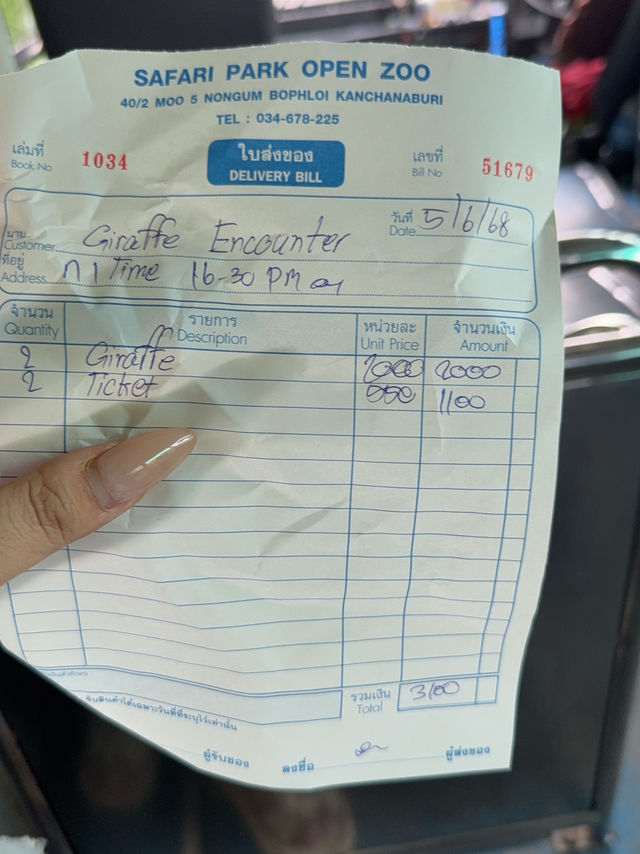 SAFARI PARK OPEN ZOO
40/2 MOO 5 NONGUM BOPHLOI KANCHANABURI
TEL : 034-678-225
เล่มที่ Book No 1034 ใบส่งของ DELIVERY BILL เลขที่ Bill No 51679
นาม Customer Giraffe Encounter วันที่ Date 5/6/68
ที่อยู่ Address Time 16-30 PM
จำนวน รายการ หน่วยละ จำนวนเงิน
Quantity Description Unit Price Amount
2 Giraffe 2000
2 Ticket 550 1100
รวมเงิน Total 3100
รับสินค้าได้เฉพาะวันที่ที่ระบุไว้เท่านั้น
ผู้รับของ ลงชื่อ ผู้ส่งของ